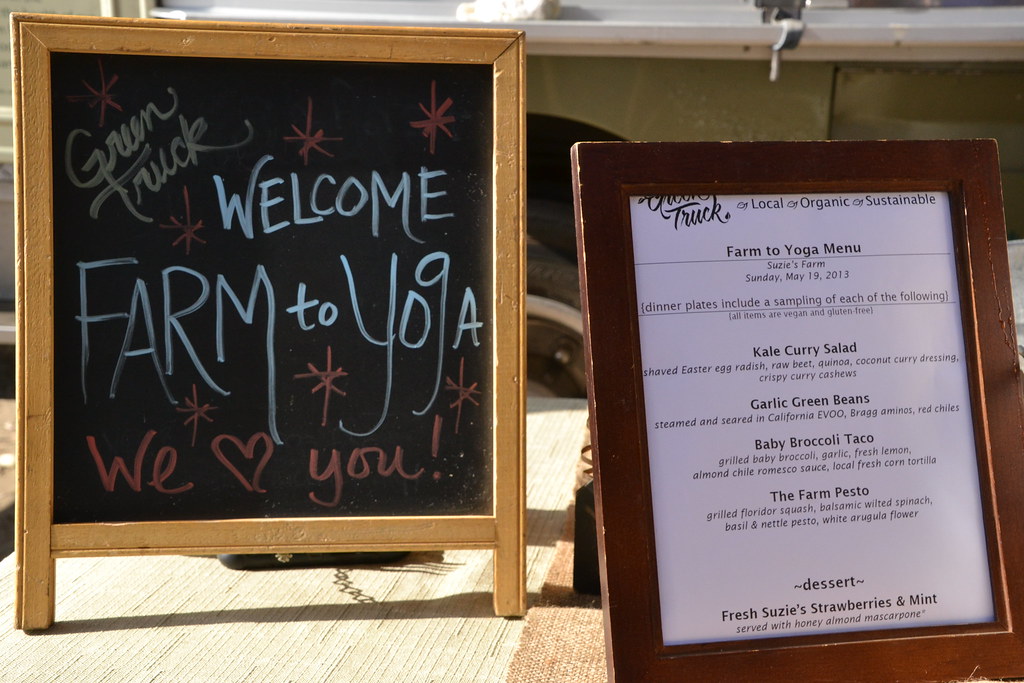 Green
Truck
WELCOME
FARM to YOgA
We you!
Green
Truck. Local Organic Sustainable
Farm to Yoga Menu
Suzie's Farm
Sunday, May 19, 2013
{dinner plates include a sampling of each of the following}
{all items are vegan and gluten-free}
Kale Curry Salad
shaved Easter egg radish, raw beet, quinoa, coconut curry dressing,
crispy curry cashews
Garlic Green Beans
steamed and seared in California EVOO, Bragg aminos, red chiles
Baby Broccoli Taco
grilled baby broccoli, garlic, fresh lemon,
almond chile romesco sauce, local fresh corn tortilla
The Farm Pesto
grilled floridor squash, balsamic wilted spinach,
basil & nettle pesto, white arugula flower
~dessert~
Fresh Suzie's Strawberries & Mint
served with honey almond mascarpone*